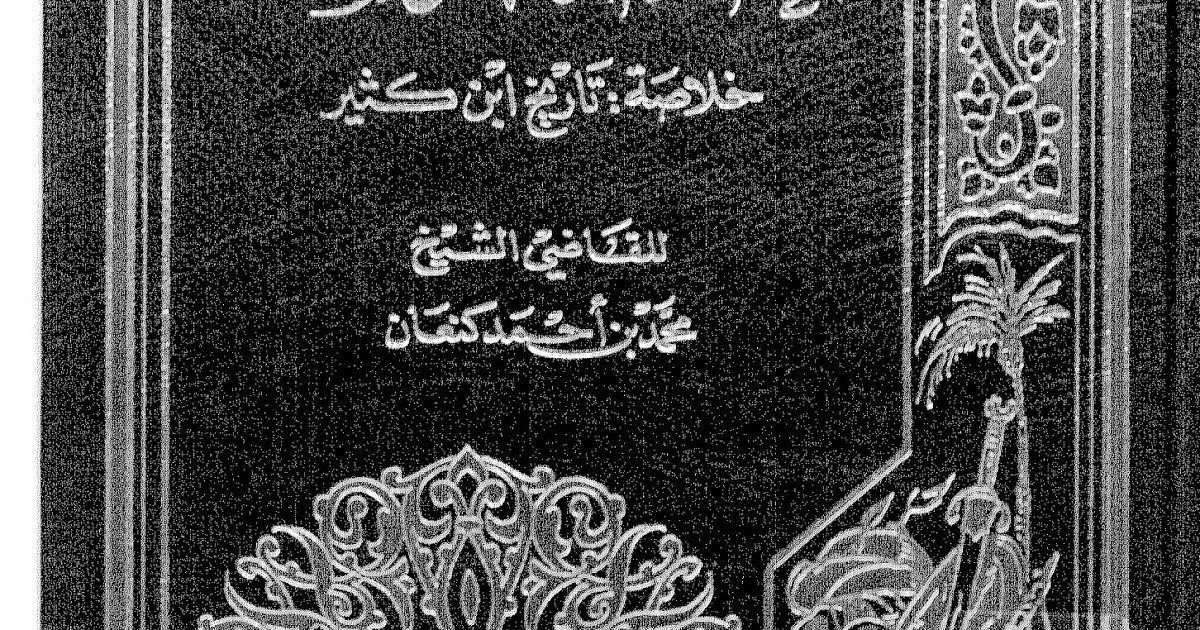 خلاصة : تاريخ ابن كثير
للقاضي الشيخ
محمد بن أحمد كنعان